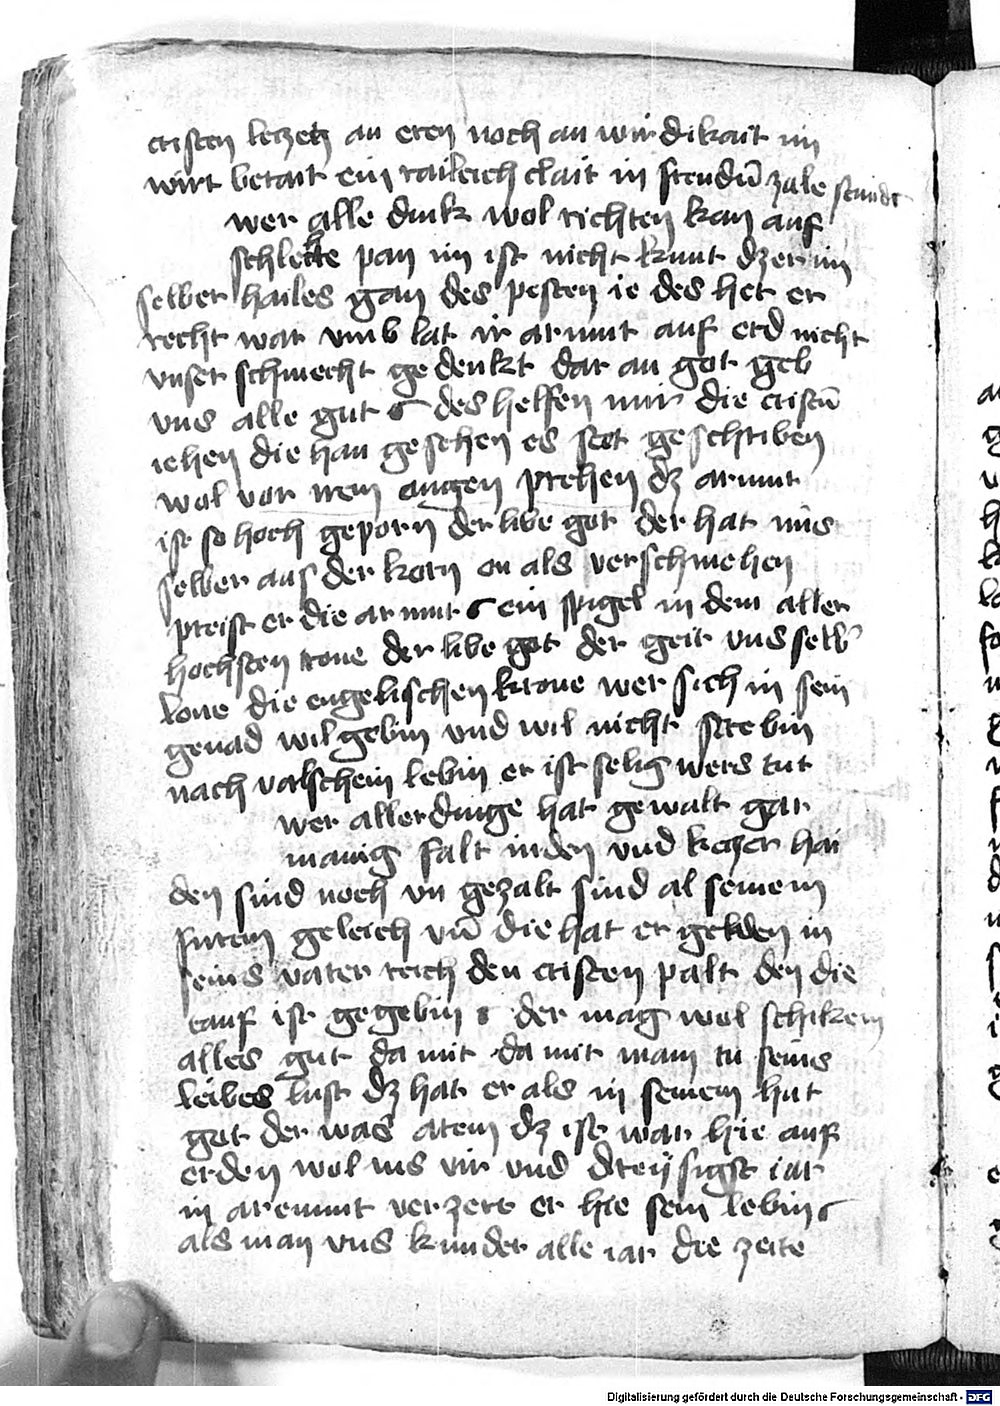 cristen letzen an eren noch an wirdikait im
wirt berait ein raileich clait in freudū zale
wer alle dink wol richten kan auf
schlechte pan im ist nicht kunt dz er im
selber hailes gan des pesten ie des het er
recht war umb lat ir armut auf erd nicht
vnser schmecht gedenkt dar an got geb
vns alle gut des helfen mir die cristū
iehen die han gesehen es stet geschriben
wol vor irem augen prehen dz armut
ist so hoch geporn der libe got der hat ims
selber aus der korn on als verschmehen
preist er die armut ein spigel in dem aller
hochsten trone der libe got der geit vns selb
lone die engelischen krone wer sich in sein
genad wil gebin vnd wil nicht strebin
nach valschem lebin er ist selig wers tut
wer aller dinge hat gewalt gar
manig falt iuden vnd keczer hai
den sind noch vn gezalt sind al seinem
furem geleich vn die hat er geben in
seins vater reich den cristen palt den die
tauf ist gegebin der mag wol schikem
alles gut da mit da mit mam tu seins
leibes lust dz hat er als in seinem hut
got der was arem dz ist war hie auf
erden wol ins vir vnd dreijsigst iar
in aremut verzert er hie sein lebin
als man vns kundet alle iar die zeite